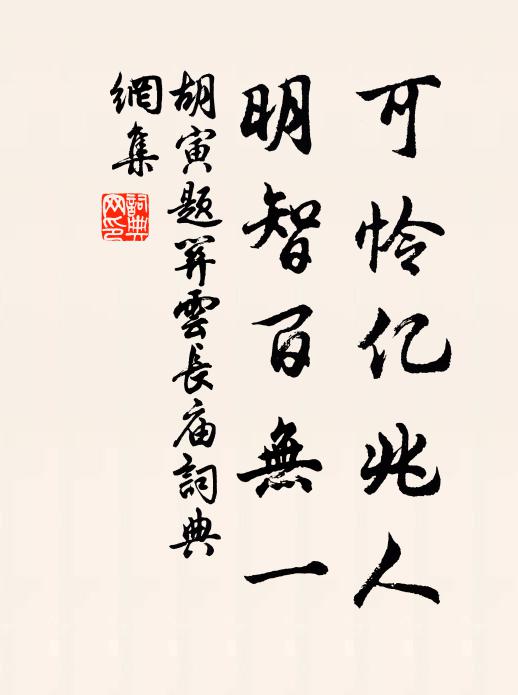 可怜亿兆人
明智百無一
胡寅題关雲長庙詞典
網集
詞典
网印